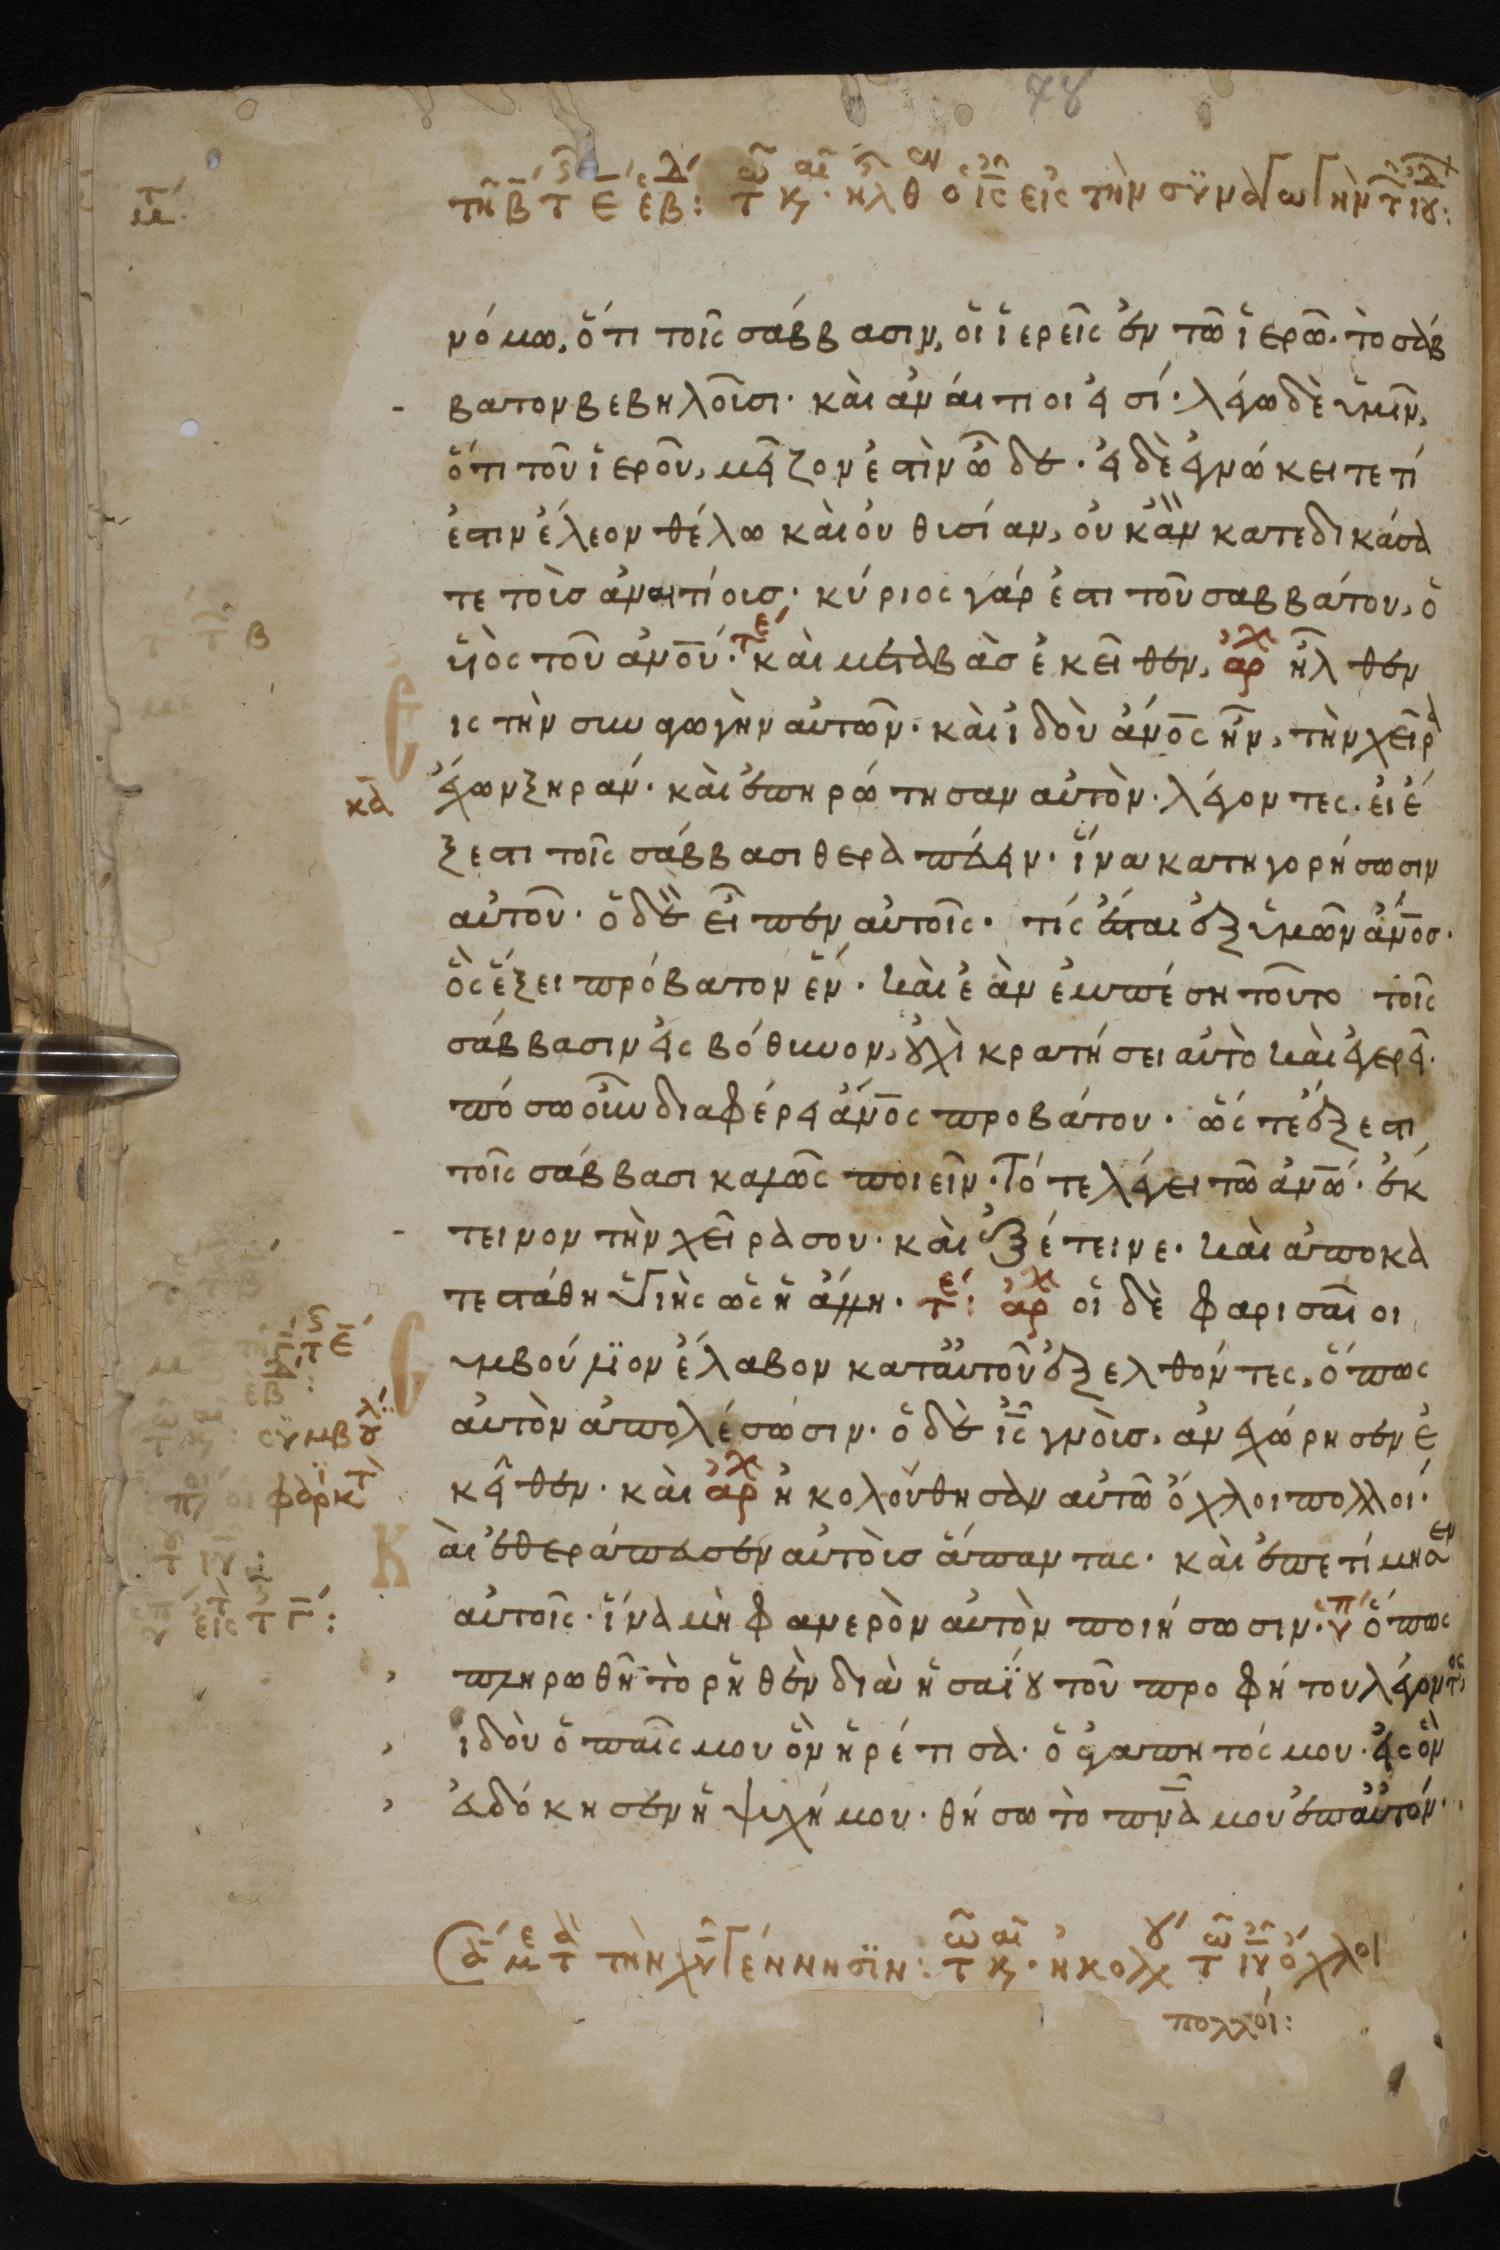 νόμω, ὅτι τοῖς σάββασιν, οἱ ἱερεῖς ἐν τῶ ἱερῶ· τὸ σάβ
βατον βεβηλοῦσι· καὶ ἀναίτιοι εἰσί· λέγω δὲ ὑμῖν,
ὅτι τοῦ ἱεροῦ, μεῖζον ἐστὶν ὧδε· εἰ δὲ ἐγνώκειτε τί
ἐστιν ἔλεον θέλω καὶ οὐ θυσίαν, οὐκ ἂν κατεδικάσα
τε τοὺς ἀναιτίους· κύριος γάρ ἐστι τοῦ σαββάτου, ὁ
υἱὸς τοῦ ἀνου· τε καὶ μεταβὰς ἐκεῖθεν, ἀρχ ἦλθεν
εἰς τὴν συναγωγὴν αὐτῶν· καὶ ἰδοὺ ἄνος ἦν, τὴν χεῖρα
κα ἔχων ξηράν· καὶ ἐπηρώτησαν αὐτὸν· λέγοντες· εἰ ἔ
ξεστι τοῖς σάββασι θεραπεύειν· ἵνα κατηγορήσωσιν
αὐτοῦ· ὁ δὲ εἶπεν αὐτοῖς· τίς ἔσται ἐξ ὑμῶν ἄνος·
ὃς ἕξει πρόβατον ἕν· καὶ ἐὰν ἐμπέση τοῦτο τοῖς
σάββασιν εἰς βόθυνον, οὐχὶ κρατήσει αὐτὸ καὶ ἐγερεῖ·
πόσω οὖν διαφέρει ἄνος προβάτου· ὥστε ἔξεστι
τοῖς σάββασι καλῶς ποιεῖν· Τότε λέγει τῶ ἀνω· ἔκ
τεινον τὴν χεῖρα σου· καὶ ἐξέτεινε· καὶ ἀποκα
τεστάθη ὑγιὴς ὡς ἡ ἄλλη· τε: ἀρχ οἱ δὲ φαρισαῖοι
συμβούλιον ἔλαβον κατ' αὐτοῦ ἐξελθόντες, ὅπως
αὐτὸν ἀπολέσωσιν· ὁ δὲ ις γνοὺς, ἀνεχώρησεν ἐ
κεῖθεν· καὶ ἀρχ ἠκολούθησαν αὐτῶ ὄχλοι πολλοί·
Καὶ ἐθεράπευσεν αὐτοὺς ἅπαντας· καὶ ἐπετίμησεν
αὐτοῖς· ἵνα μὴ φανερὸν αὐτὸν ποιήσωσιν· ὅπως
πληρωθῆ τὸ ρηθὲν διὰ ἡσαΐου τοῦ προφήτου λέγοντος,
ἰδοὺ ὁ παῖς μου ὃν ἡρέτισα· ὁ ἀγαπητός μου· εἰς ὃν
εὐδόκησεν ἡ ψυχή μου· θήσω τὸ πνα μου ἐπ' αὐτόν·
πολλοί: